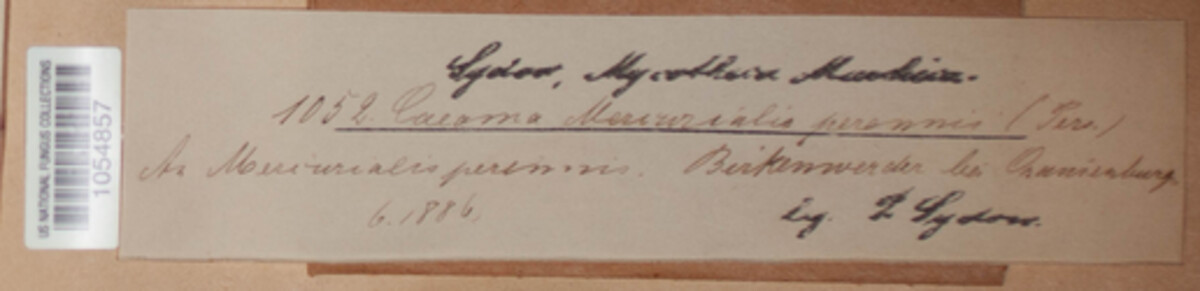 US NATIONAL FUNGUS COLLECTIONS
1054857
Sydow, Mycotheca Marchica.
1052. Caeoma Mercurialis perennis (Pers.)
An Mercurialis perennis. Birkenwerder bei Oranienburg.
6.1886.
leg. P Sydow.